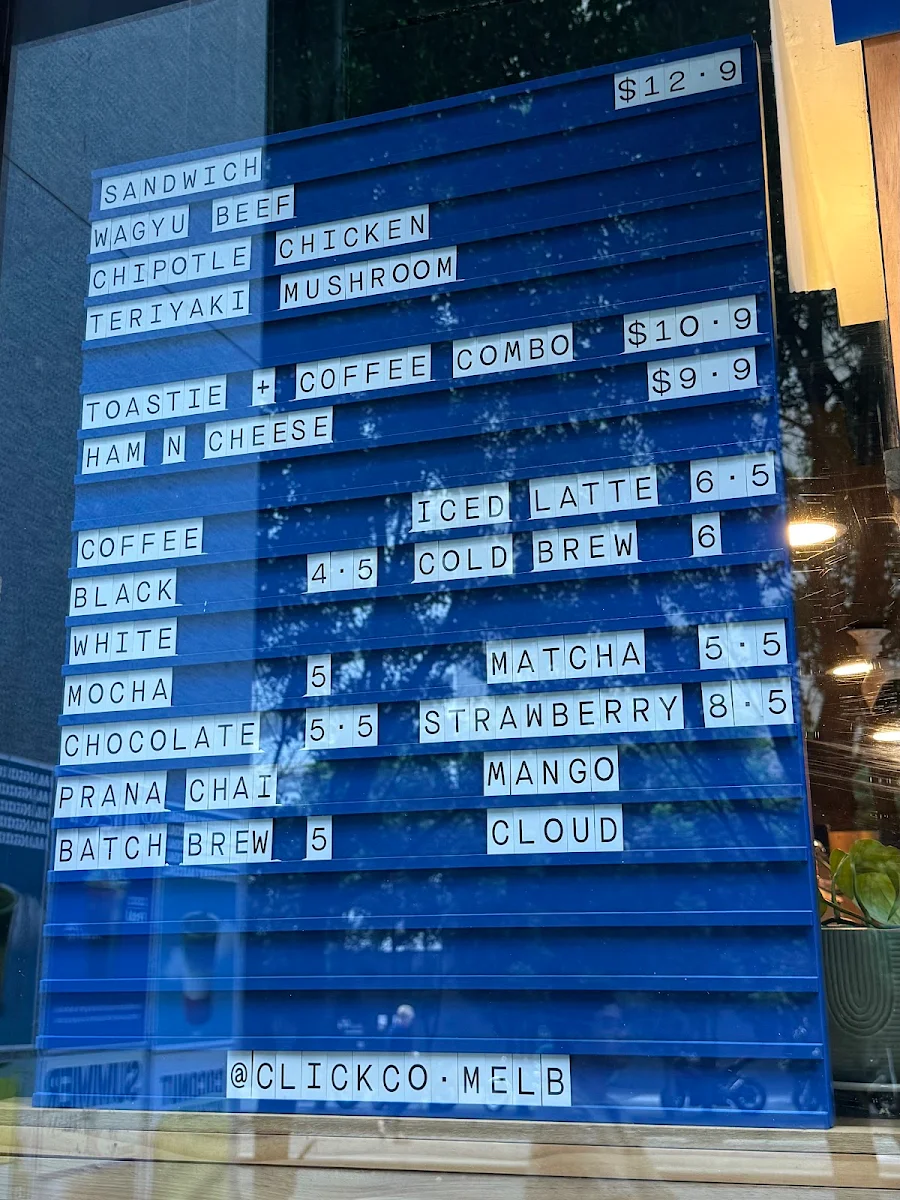 SANDWICH $12.9
WAGYU BEEF
CHIPOTLE CHICKEN
TERIYAKI MUSHROOM
TOASTIE + COFFEE COMBO $10.9
HAM N CHEESE $9.9
COFFEE ICED LATTE 6.5
BLACK 4.5 COLD BREW 6
WHITE
MOCHA 5 MATCHA 5.5
CHOCOLATE 5.5 STRAWBERRY 8.5
PRANA CHAI MANGO
BATCH BREW 5 CLOUD
@CLICKCO.MELB